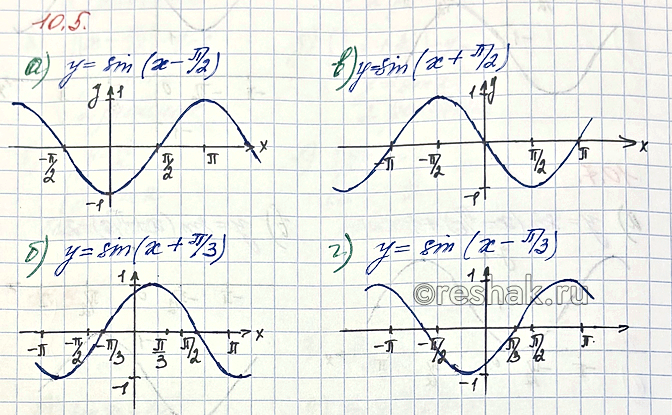 10.5.
а) y = sin (x - π/2)
y 1
-π/2 π/2 π x
-1
в) y = sin (x + π/2)
1 y
-π -π/2 π/2 π x
-1
б) y = sin (x + π/3)
1
-π -π/2 -π/3 π/3 π/2 π x
-1
г) y = sin (x - π/3)
1
©reshak.ru
-π -π/2 π/3 π/2 π
-1